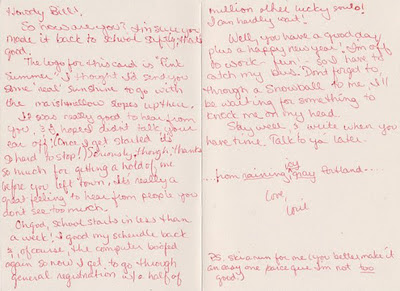 Howdy Bill!
So how are you? I'm sure you
made it back to school safely, that's
good.
The logo for this card is "Pink
Summer". I thought I'd send you
some "real" sunshine to go with
the marshmellow slopes up there.
It was really good to hear from
you, & I hope I didn't talk your
ear off! Once I get started it's
so hard to stop! Seriously, though, thanks
so much for getting a hold of me
before you left town. It's really a
great feeling to hear from people you
don't see too much.
Oh god, school starts in less than
a week! I good my scheudle back
& of course, the computer booped
again so now I get to go through
general registration with half of
million other lucky souls!
I can hardly wait!
Well, you have a good day
plus a happy new year! I'm off
to work - fun! - so I have to
catch my bus. Don't forget to
through a snowball to me. I'll
be waiting for something to
knock me on my head.
Stay well, & write when you
have time. Talk to ya' later.
icy
...from raining, gray Portland...
Love,
PS. ski a run for me (you better make it
an easy one 'cause I'm not too
good)